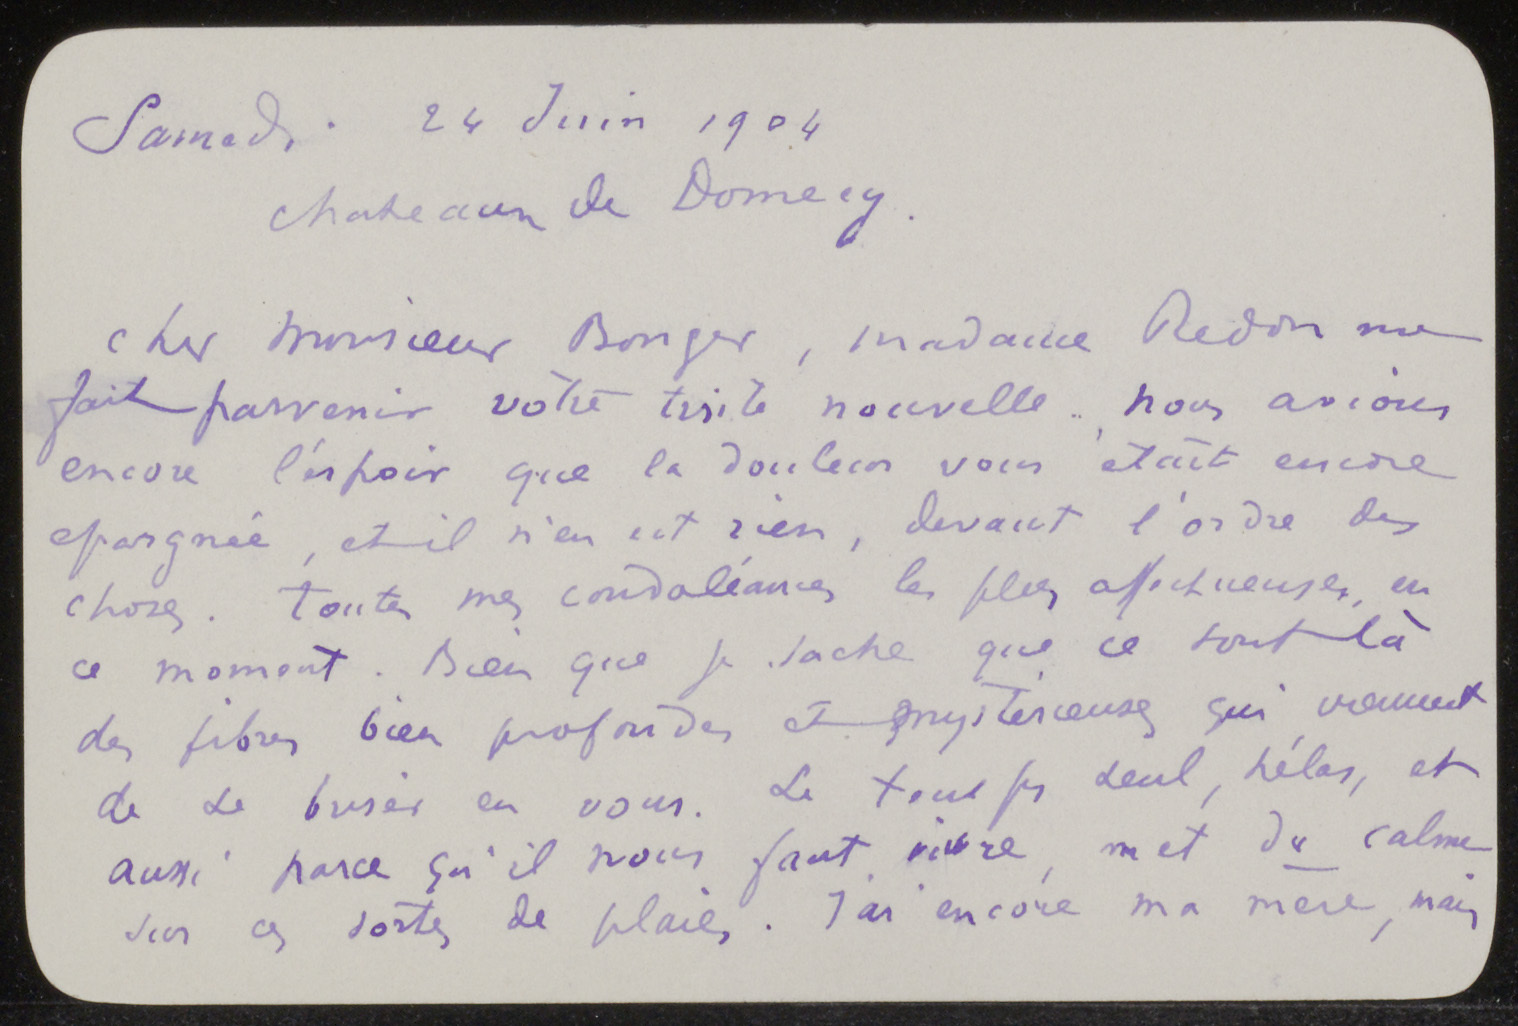 Samedi. 24 Juin 1904
chateaux de Domecy.
cher Monsieur Bonger, madame Redon me
fait parvenir vôtre triste nouvelle., nous avions
encore l'éspoir que la douleur vous était encore
épargnée, et il n'en est rien, devant l'ordre des
choses. toutes mes condoléances les plus affectueuses, en
ce moment. Bien que je sache que ce sont là
des fibres bien profondes et mystérieuses qui viennent
de se briser en vous. Le temps seul, hélas, et
aussi parce qu'il nous faut vivre, met du calme
sur ces sortes de plaies. J'ai encore ma mère, mais